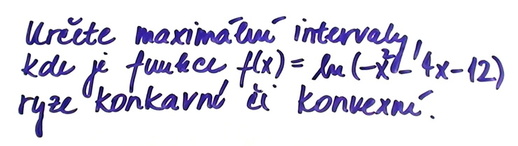 Určete maximální intervaly,
kde je funkce f(x) = ln(-x²-4x-12)
ryze konkavní či konvexní.